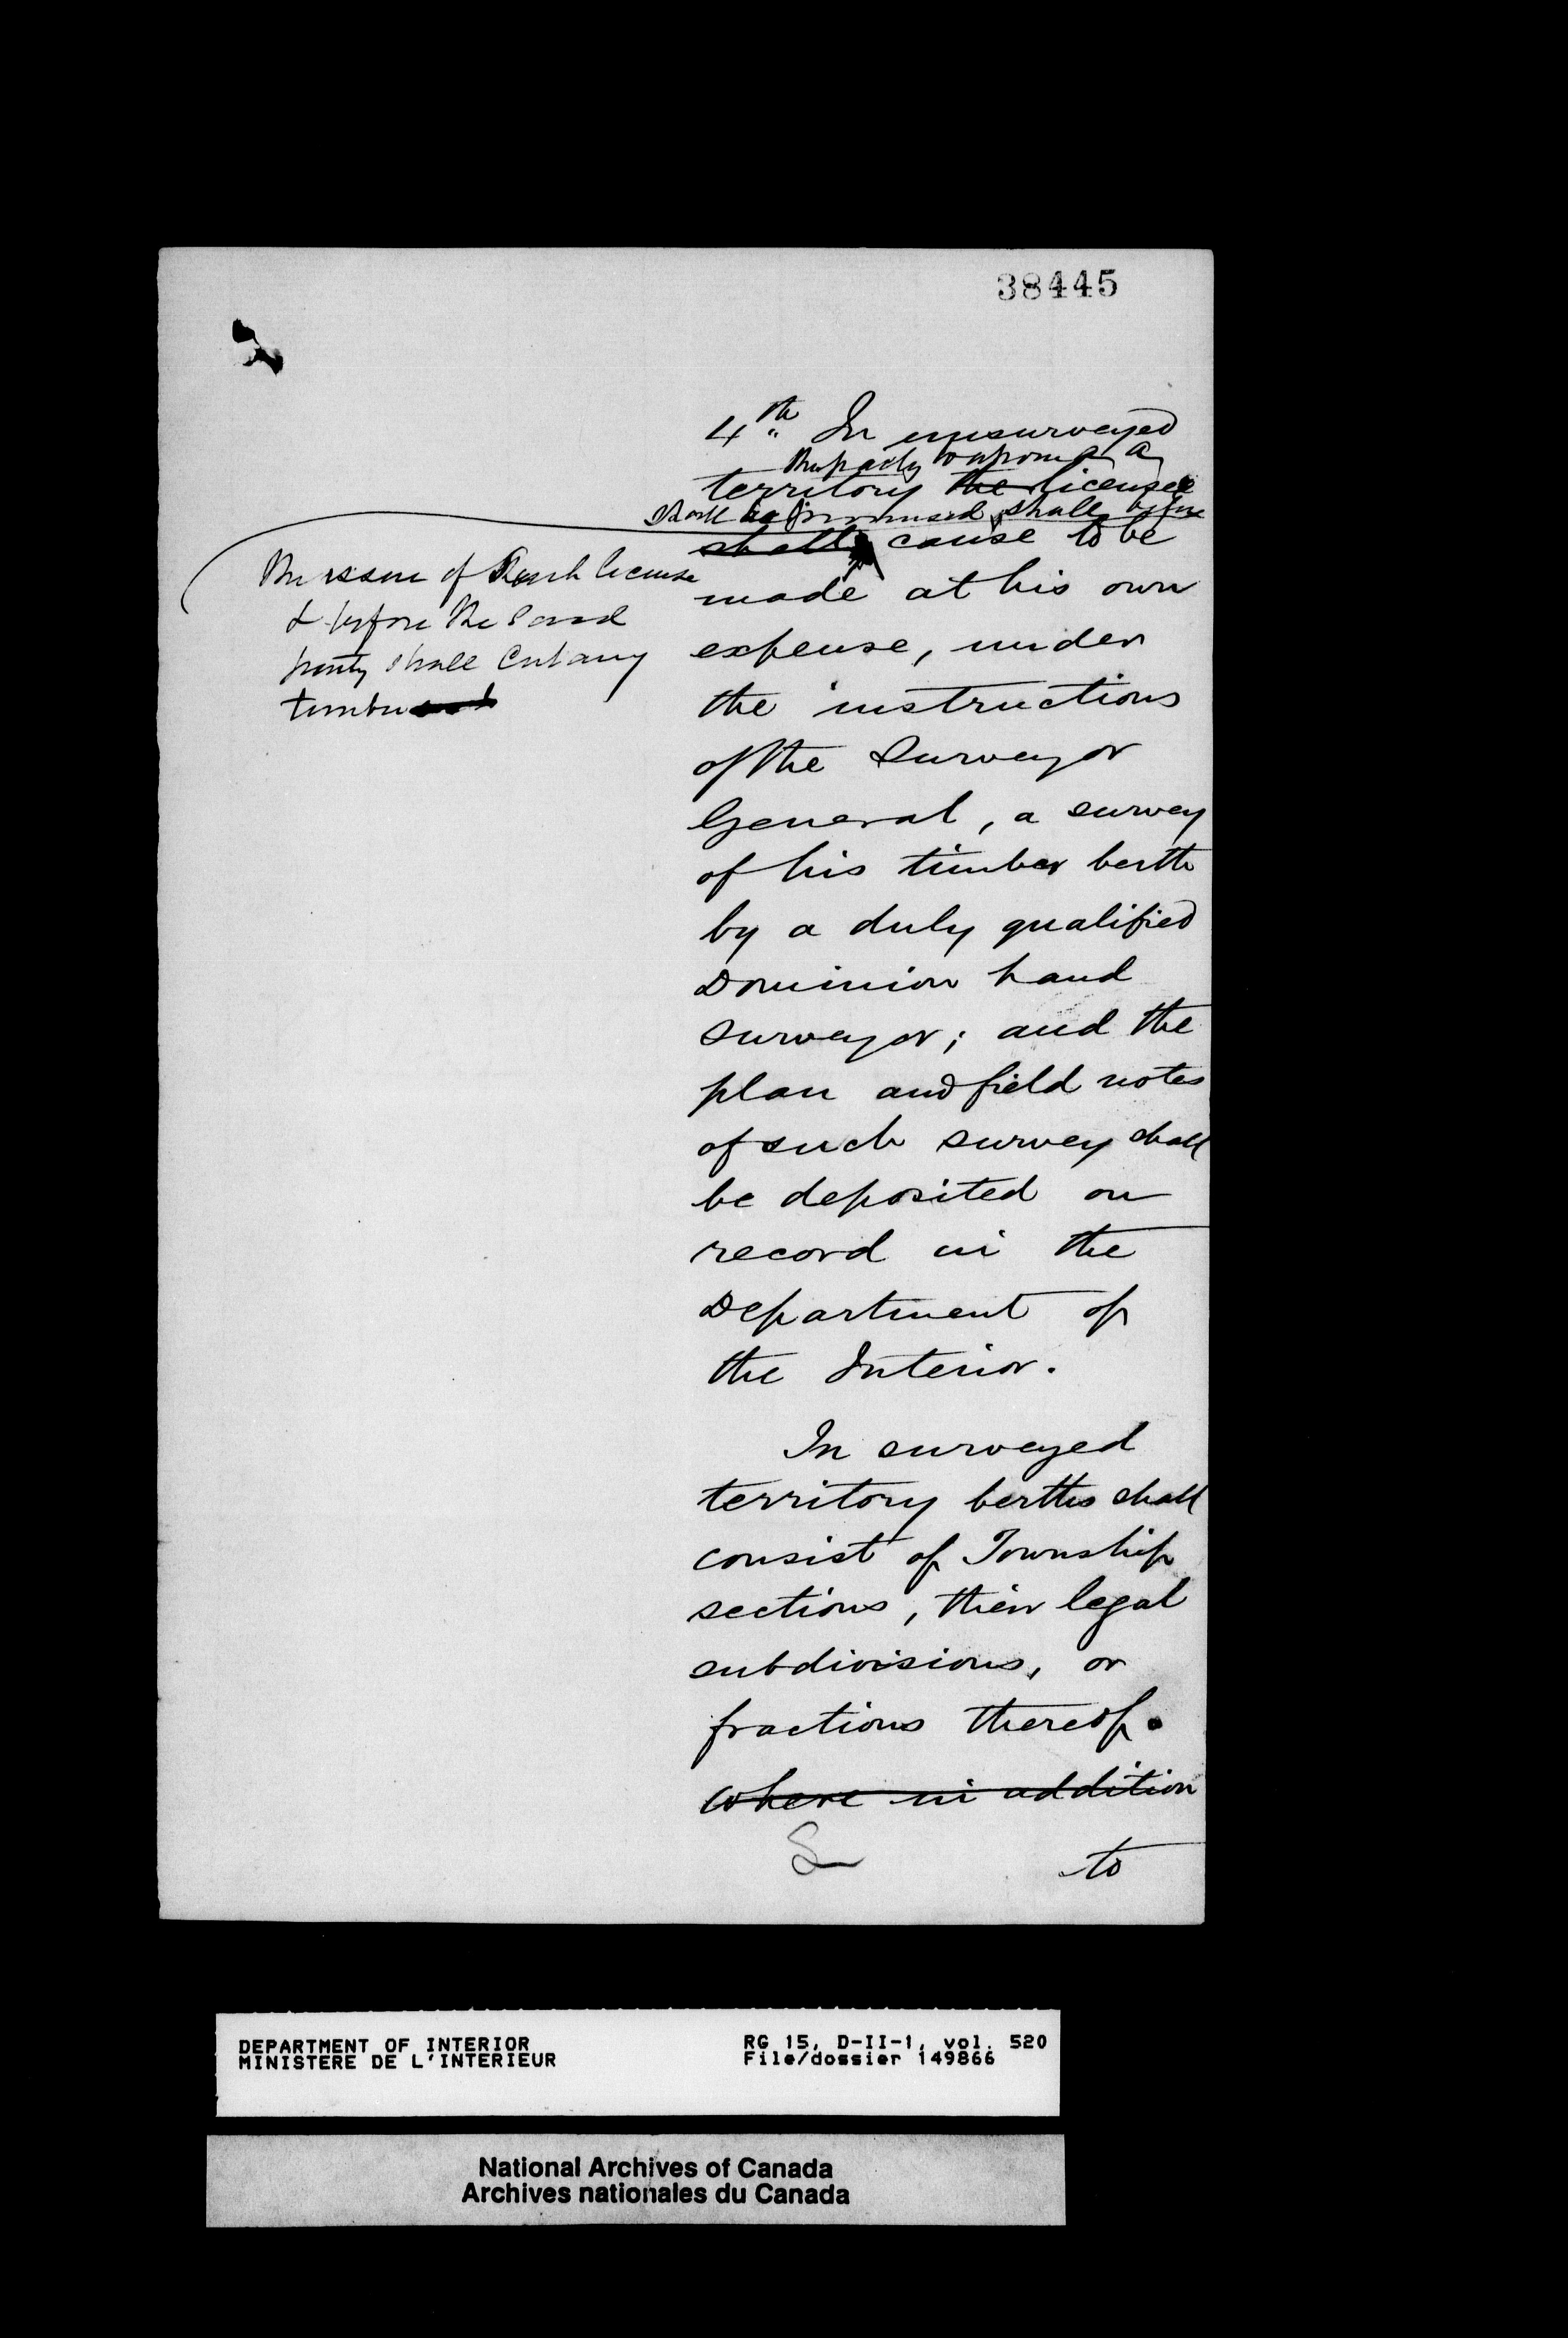 38445
4th In unsurveyed
the party to whom a
territory the license
shall be promised shall before
shall cause to be
the issue of such license
& before the said
party shall cut any
timber
made at his own
expense, under
the instructions
of the Surveyor
General, a survey
of his timber berth
by a duly qualified
Dominion Land
Surveyor; and the
plan and field notes
of such survey shall
be deposited on
record in the
Department of
the Interior.
In surveyed
territory berths shall
consist of Township
sections, their legal
subdivisions, or
fractions thereof.
where in addition
to
DEPARTMENT OF INTERIOR
MINISTERE DE L'INTERIEUR
RG 15, D-II-1, vol. 520
File/dossier 149866
National Archives of Canada
Archives nationales du Canada